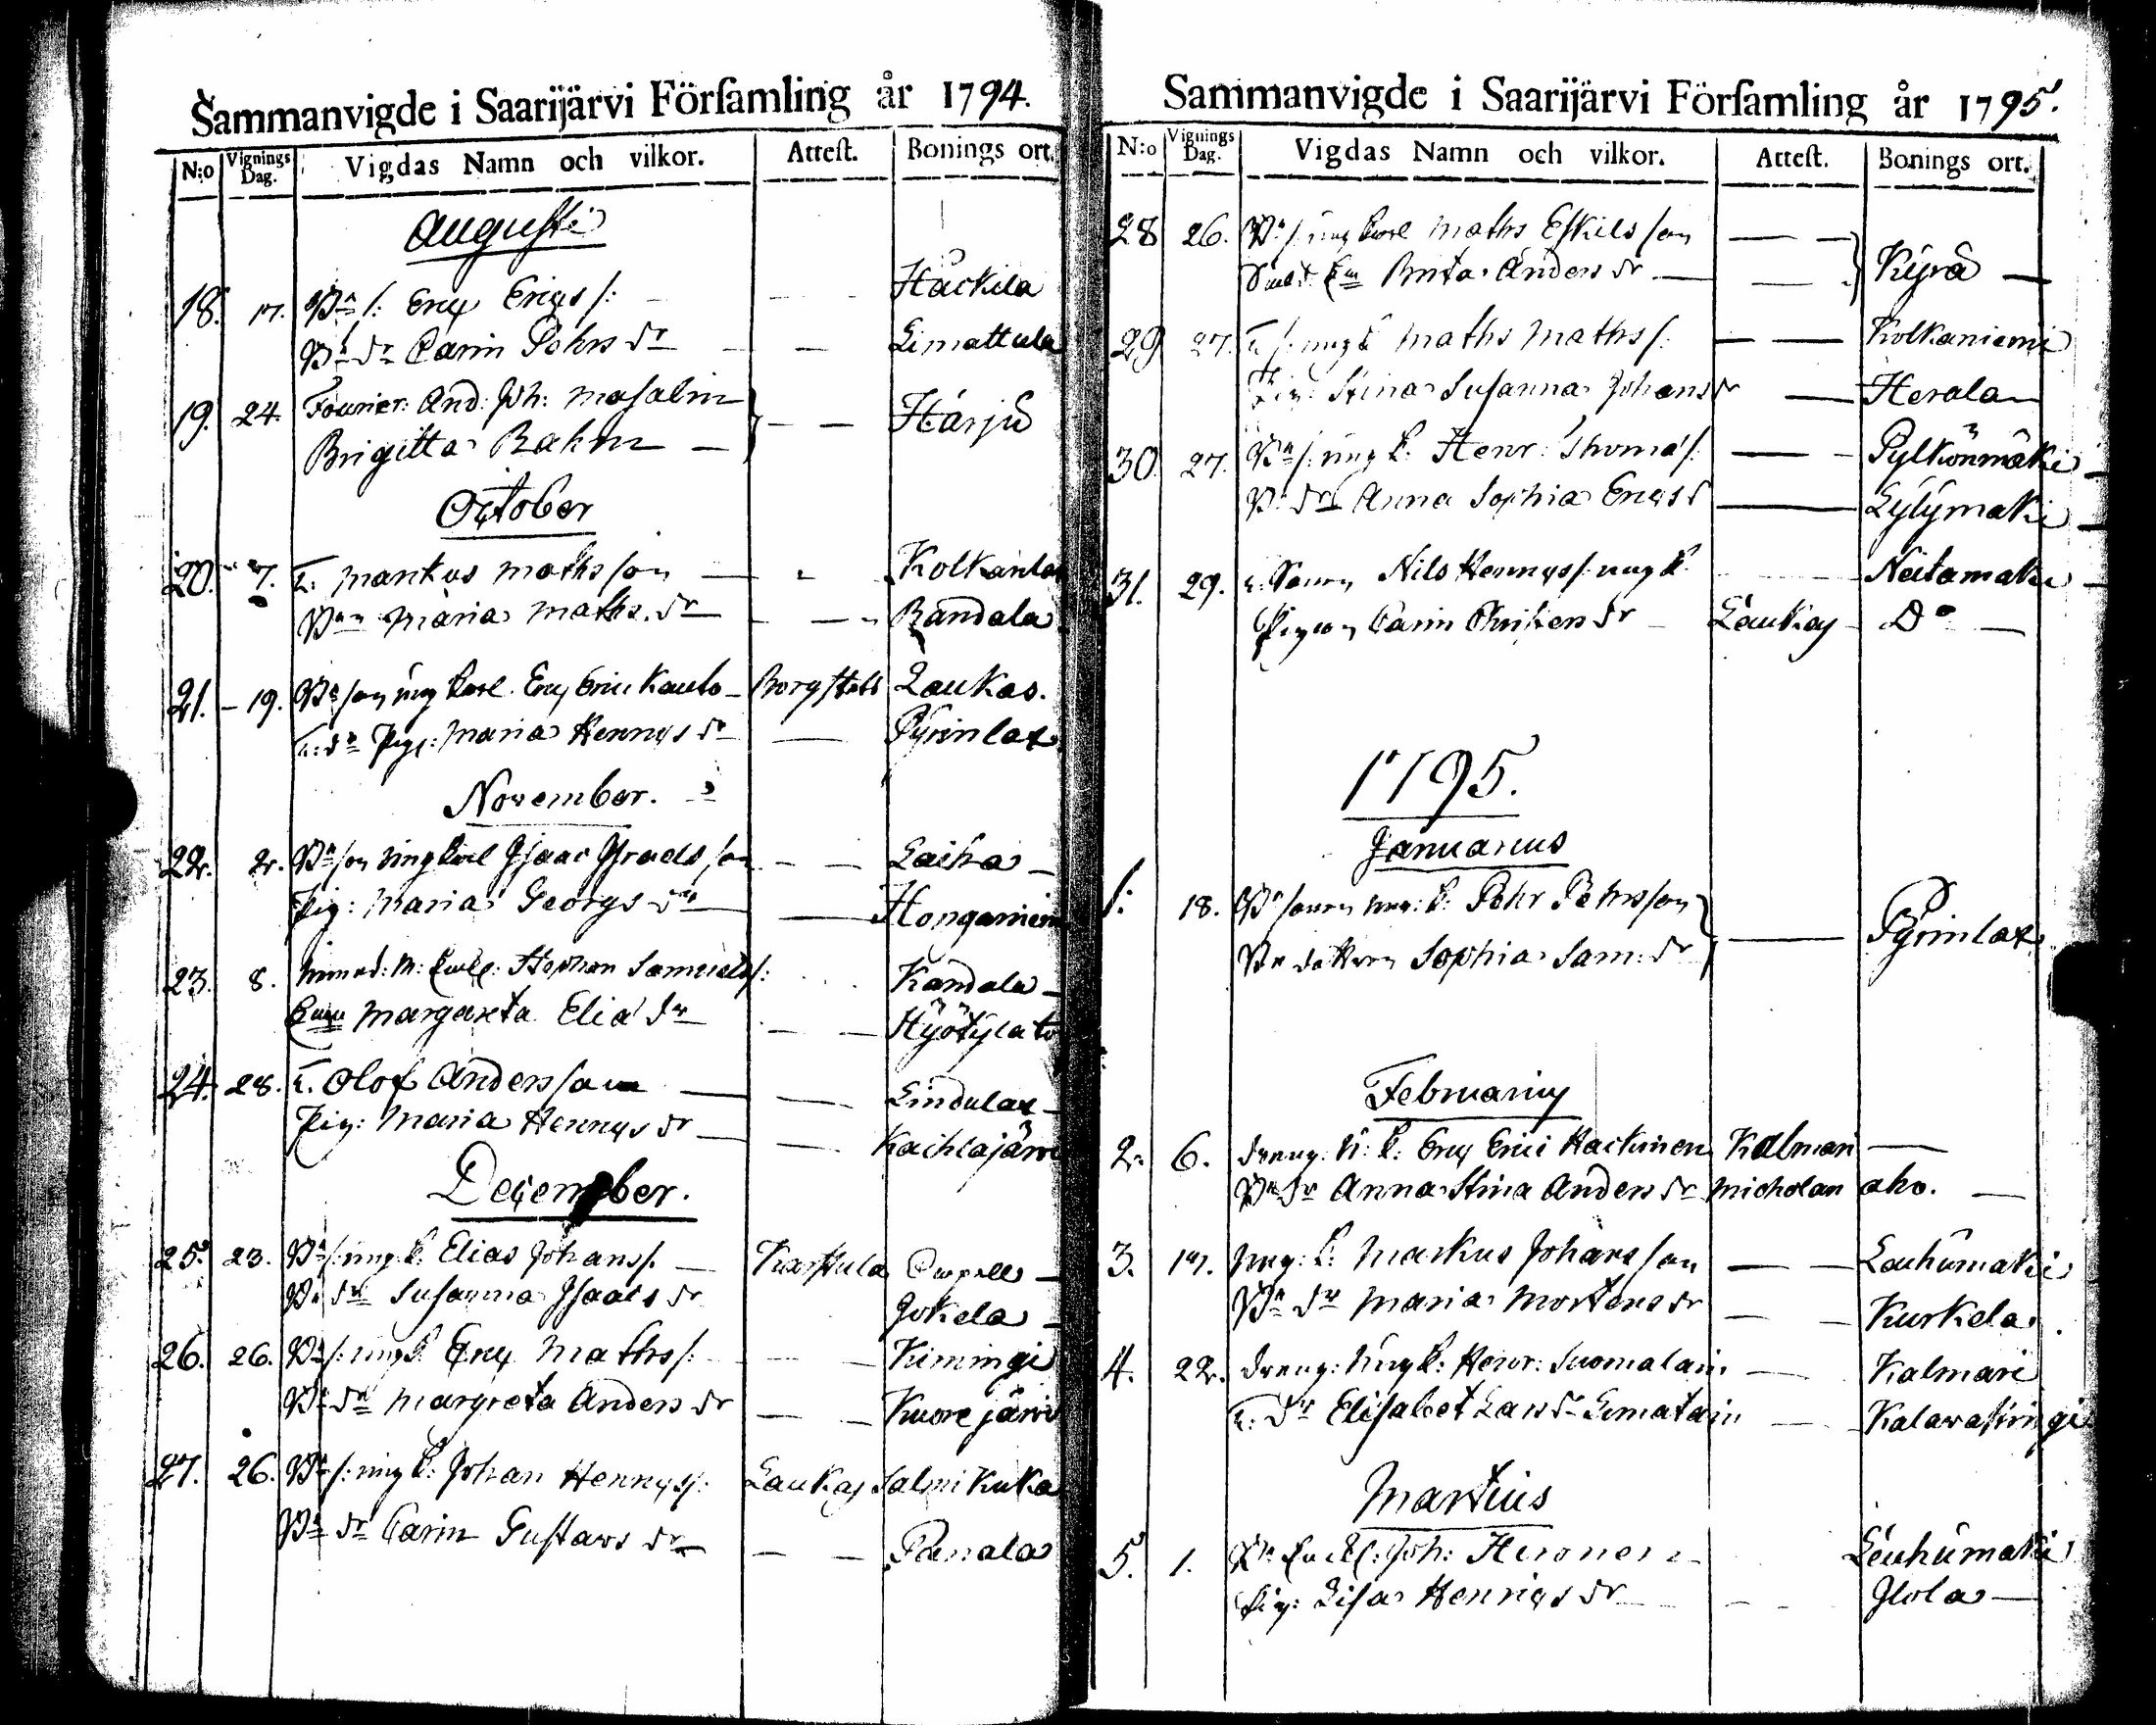 Sammanvigde i Saarijärvi Förſamling år 1794.
N:o Vignings Dag. Vigdas Namn och vilkor. Atteſt. Bonings ort.
Augusti
18. 17. Bd s: Eriq Eriqs s: Häckilä
Bd dr Carin Pehrs dr Limattula
19. 24. Fourier: And: Joh: Masalin Harju
Brigitta Rahm
October
20. 7. T. Markus Mathsson Kolkanla
Maria Maths. dr Randala
21. 19. Bd son ung Karl. Eriq Eric Kauto Borgstab Laukas.
T: dr Pig: Maria Henriqs dr Pyrinlax
November.
22. 2. Bd son ung Karl Isaac Israels son Laiha
Pig: Maria Georgs dr Honganiem
23. 8. Stephan Samuels s: Kandala
Margareta Elia dr Hyötylä
24. 28. T. Olof Andersson Lindulax
Pig: Maria Henriqs dr Kaihlajärvi
December.
25. 23. Bd s: ung k. Elias Johans s. Karstula Capell
Bd dr Susanna Isaacs dr Jokela
26. 26. Bd s: ung k. Eriq Maths s: Kimingi
Bd dr Margreta Anders dr Kuorejärvi
27. 26. Bd s: ung k: Johan Henriqs s: Laukas Salmi Kuka
Bd dr Carin Gustavs dr Panala
Sammanvigde i Saarijärvi Förſamling år 1795.
N:o Vignings Dag. Vigdas Namn och vilkor. Atteſt. Bonings ort.
28 26. Bd s: ung Karl Maths Eskilsson
Brita Anders dr Kyrö
29 27. T s: ung k Maths Maths s: Kolkaniemi
Pig: Stina Susanna Johans dr Herala
30. 27. Bd s: ung k: Henr: Thomas s: Pylkönmäki
Bd dr Anna Sophia Eriqs d Lylymäki
31. 29. Nils Henriqs s: ung k. Neitamäki
Pigan Carin Christers dr Laukas Do
1795.
Januarius
1: 18. Bd sonen ung: k: Pehr Pehrsson
Bd dottren Sophia Sam: dr Pyrinlax
Februarius
2. 6. dreng: u: k: Eriq Erici Hackinen Kalmari
Bd dr Anna Stina Anders dr Micholan aho.
3. 17. ung: k: Markus Johansson Leuhumäki
Bd dr Maria Mortens dr Kurkela
4. 22. dreng: ung k: Henr: Suomalain Kalmari
T: dr Elisabet Lars dr Limatain Kalavastingi
Martius
5. 1. Joh: Hironen Leuhumäki
Pig: Lisa Henriqs dr Ilola